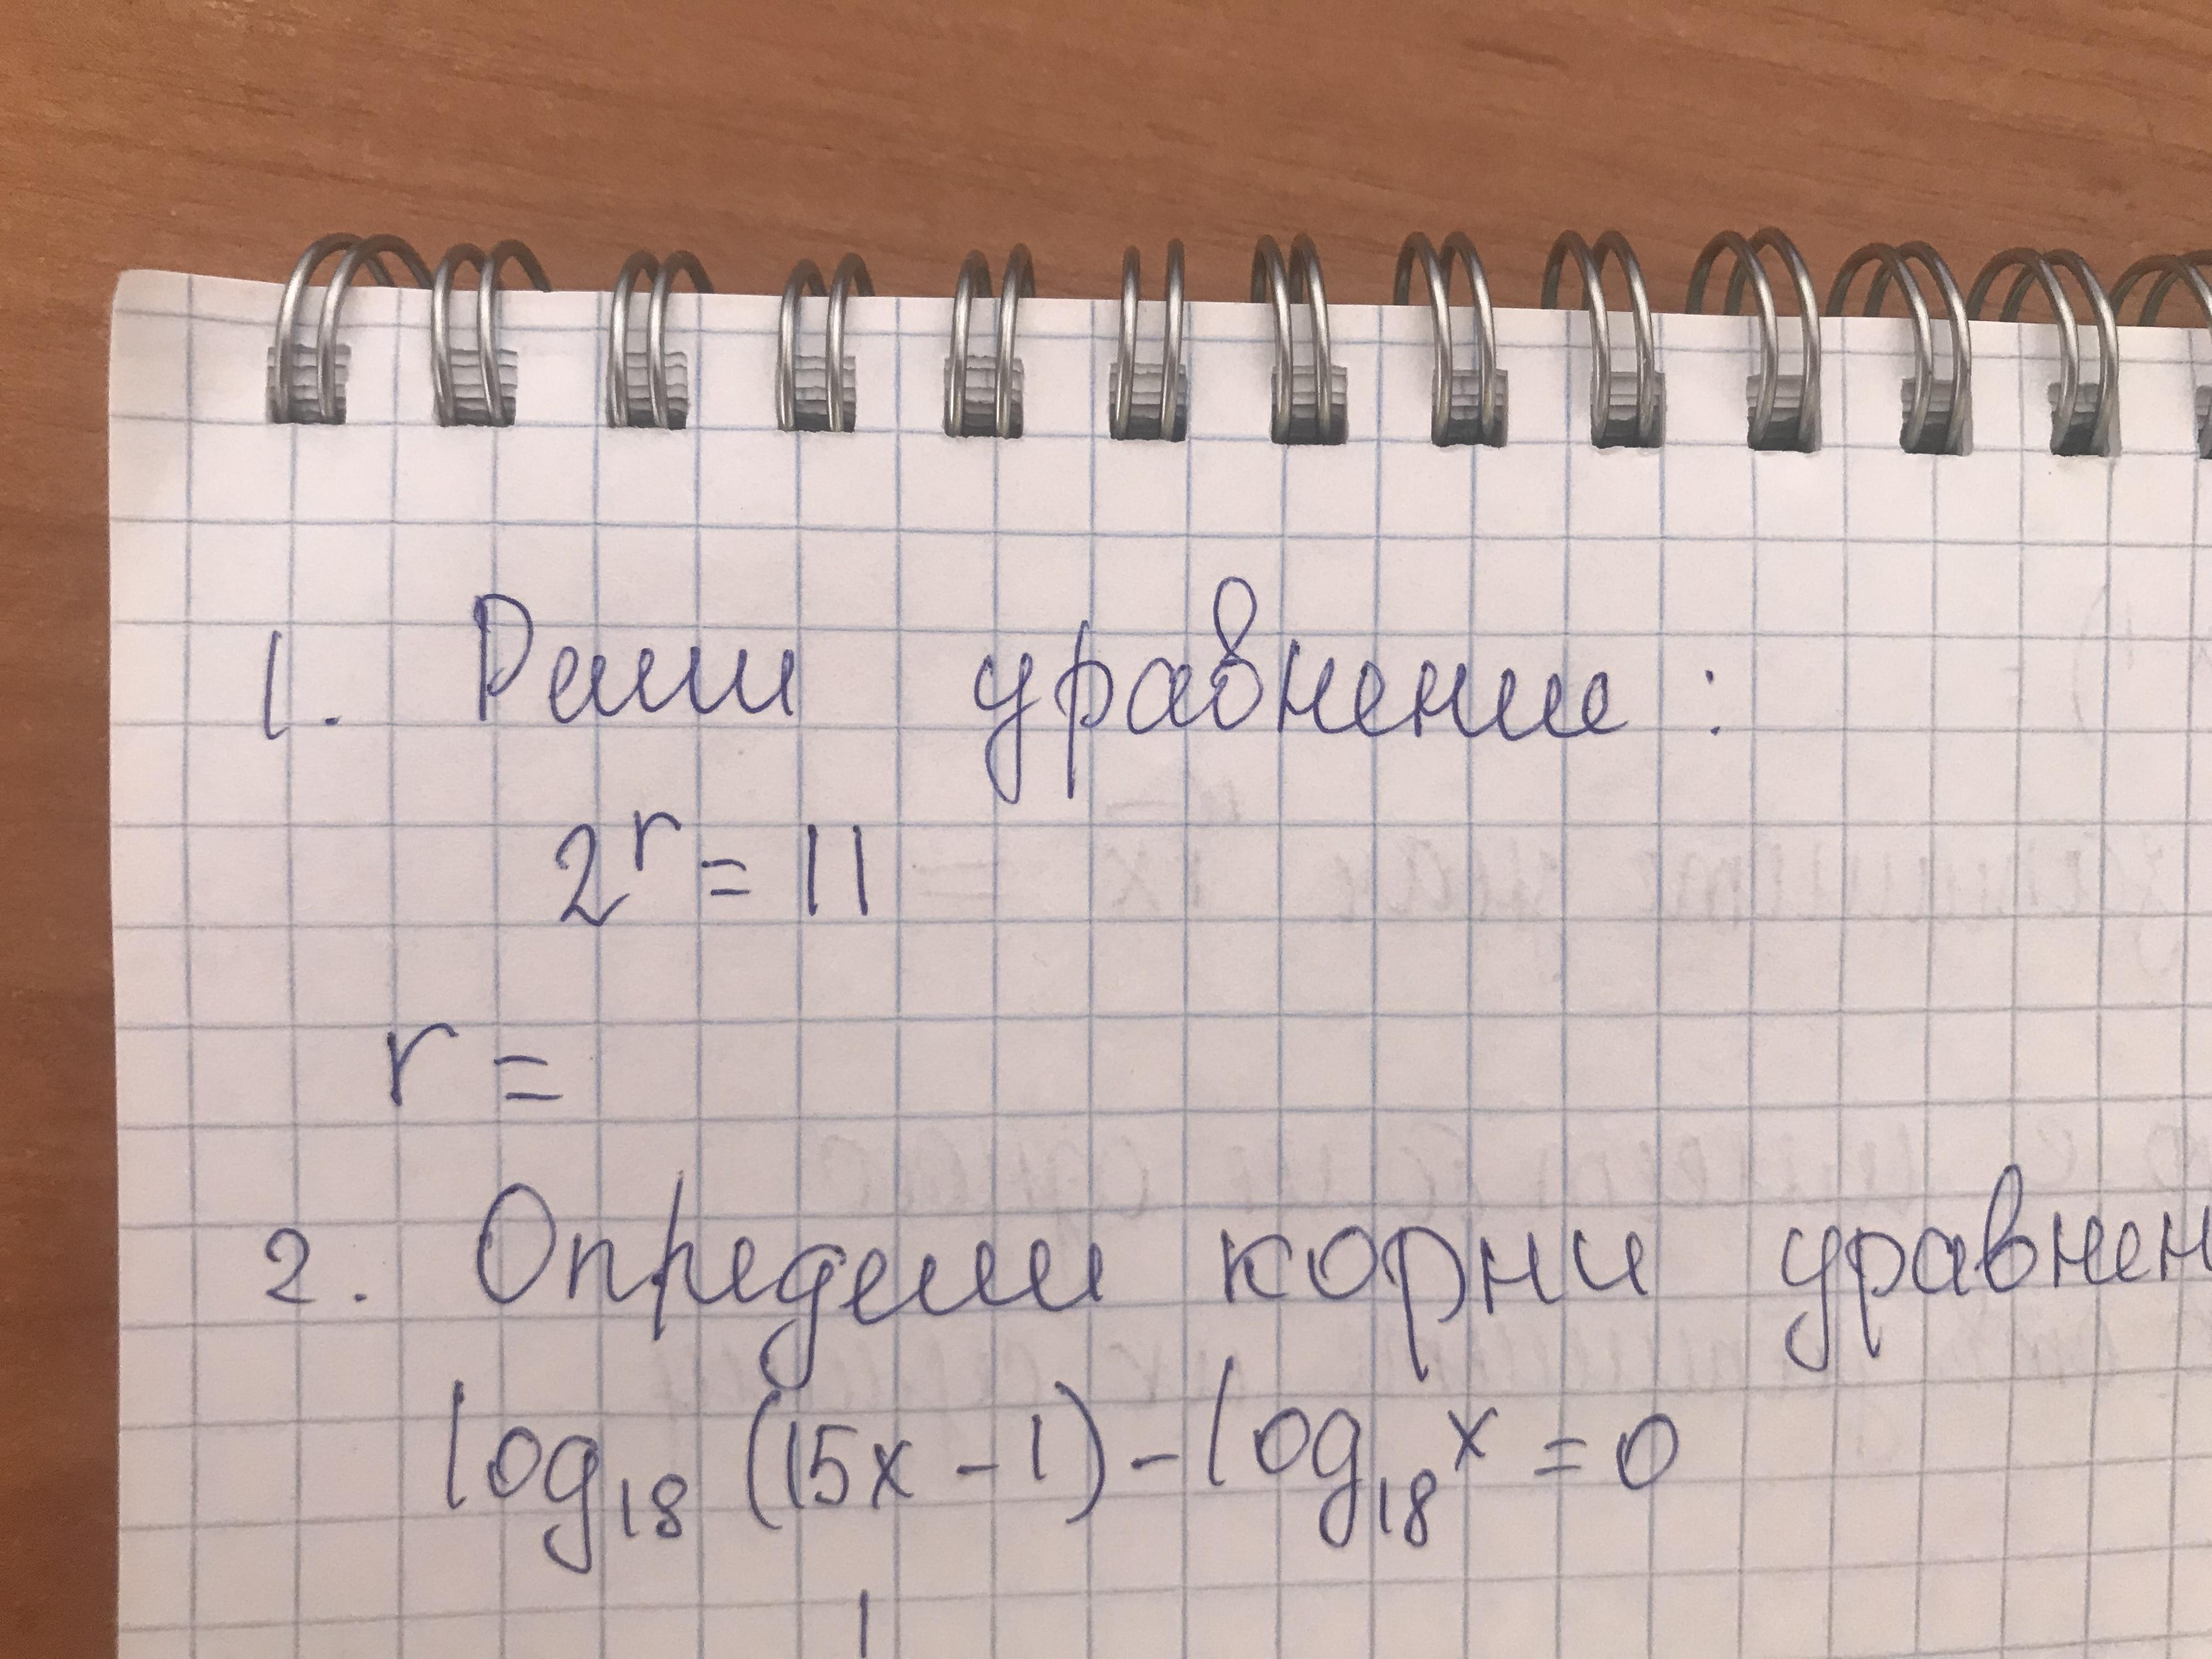 1. Реши уравнение:
2^r = 11
r =
2. Определи корни уравнен
log₁₈ (15x - 1) - log₁₈ x = 0